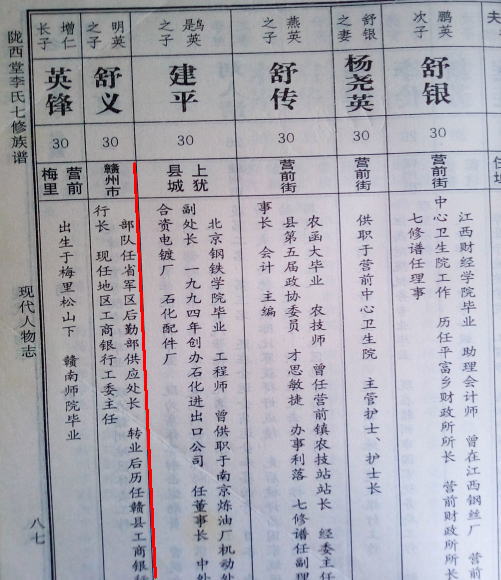 夫
鹏英
次子
舒银
30
营前街
江西财经学院毕业 助理会计师 曾在江西钢丝
中心卫生院工作 历任平富乡财政所所长 营前财政所所长
七修谱任理事
舒银
之妻
杨尧英
30
营前街
供职于营前中心卫生院 主管护士、护士长
燕英
之子
舒传
30
营前街
农函大毕业 农技师 曾任营前镇农技站站长 经委主任
县第五届政协委员 才思敏捷 办事利落 七修谱任副理
事长 会计 主编
是鸟
之子
建平
30
上犹
县城
北京钢铁学院毕业 工程师 曾供职于南京炼油厂机动处
副处长 一九九四年创办石化进出口公司 任董事长 中外
合资电镀厂 石化配件厂
明英
之子
舒义
30
赣州市
部队任省军区后勤部供应处长 转业后历任赣县工商银行
行长 现任地区工商银行工委主任
增仁
长子
英锋
30
营前
梅里
出生于梅里松山下 赣南师院毕业
陇西堂李氏七修族谱
现代人物志
八七